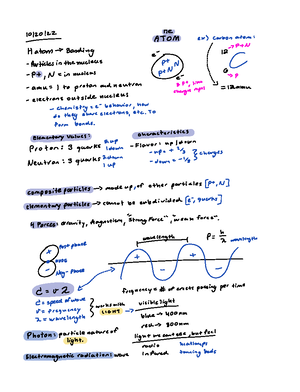 10/20/22
the ATOM
ex) Carbon atom:
H atom → Bonding
12 → P+N
- Particles in the nucleus
C
- P+, N = in nucleus
6 → P
e-
P+
P+ N
e-
- amu = 1 to proton and neutron
= 12 amu
- electrons outside nucleus
- Chemistry = e- behavior, how
do they share electrons, etc. To
form bonds.
Elementary Values:
characteristics
Proton: 3 quarks
2 up
1 down
- Flavor: up/down
- up = + 2/3
- down = - 1/3
charges
Neutron: 3 quarks
2 down
1 up
composite particles → made up, of other particles [P+, N]
elementary particles → cannot be subdivided [e-, quarks]
4 Forces: Gravity, Magnetism, "Strong force", "weak force".
wavelength
P = h/λ
wavelength
+ Pos + phase
node
- Neg - phase
+ - + -
C = v λ
frequency = # of crests passing per time
C = speed of wave
v = frequency
λ = wavelength
works with
LIGHT
visible light
blue → 400nm
red → 800nm
Photon: particle nature of
light.
light we can't see, but feel
radio
infrared
Electromagnetic radiation: wave